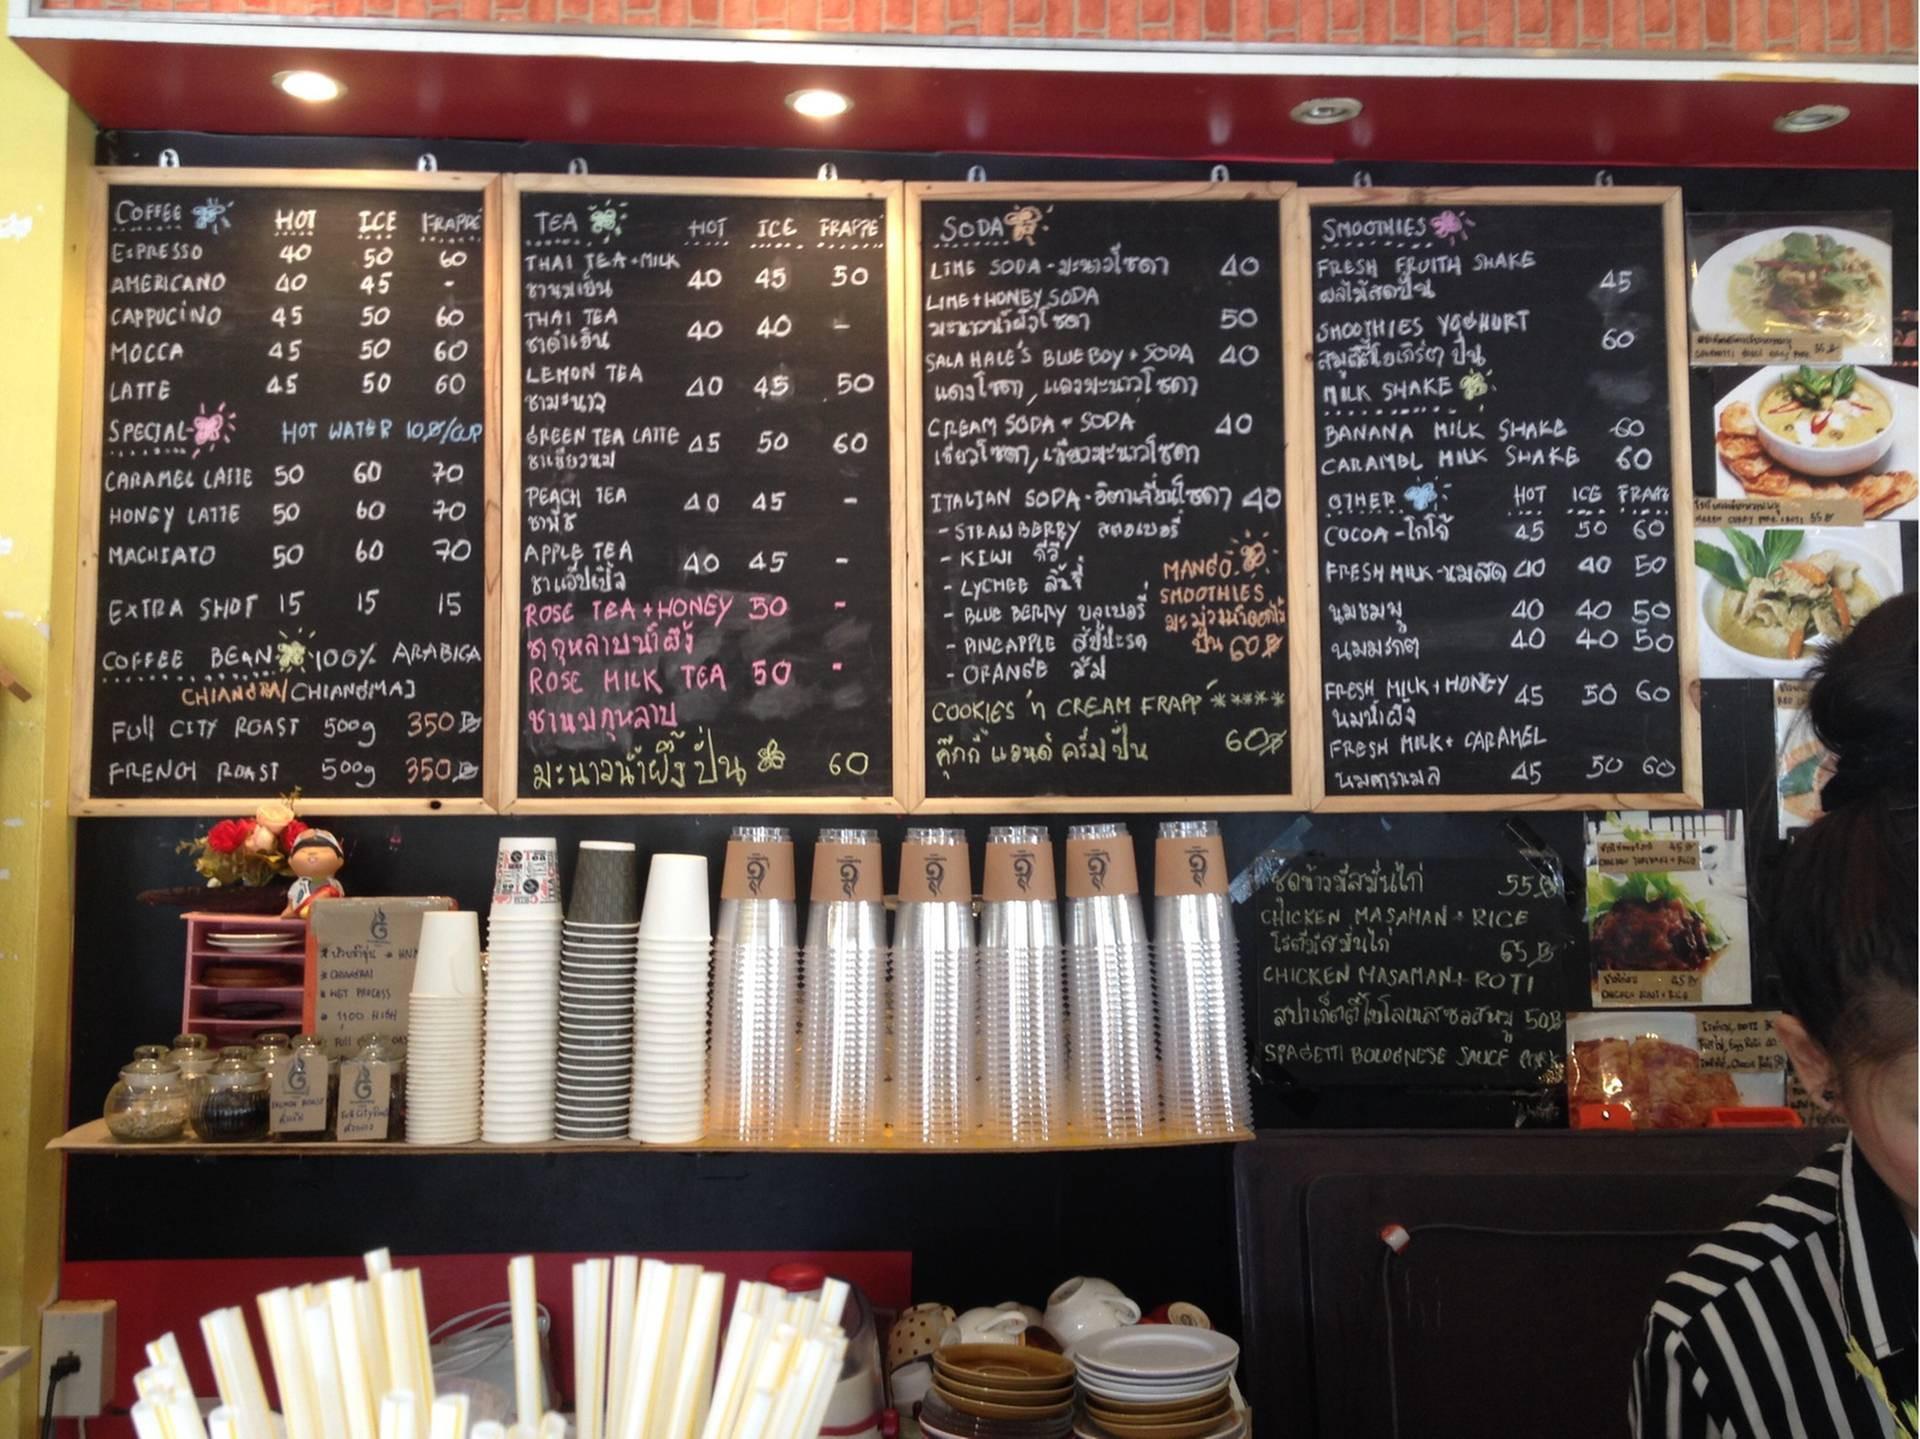 COFFEE HOT ICE FRAPPÉ
ESPRESSO 40 50 60
AMERICANO 40 45 -
CAPPUCINO 45 50 60
MOCCA 45 50 60
LATTE 45 50 60
SPECIAL HOT WATER 10฿/CUP
CARAMEL LATTE 50 60 70
HONEY LATTE 50 60 70
MACHIATO 50 60 70
EXTRA SHOT 15 15 15
COFFEE BEAN 100% ARABICA
CHIANGRAI/CHIANGMAI
Full CITY ROAST 500g 350฿
FRENCH ROAST 500g 350฿
TEA HOT ICE FRAPPÉ
THAI TEA+MILK
ชานมเย็น 40 45 50
THAI TEA
ชาดำเย็น 40 40 -
LEMON TEA
ชามะนาว 40 45 50
GREEN TEA LATTE
ชาเขียวนม 45 50 60
PEACH TEA
ชาพีช 40 45 -
APPLE TEA
ชาแอ๊ปเปิ้ล 40 45 -
ROSE TEA+HONEY 50 -
ชากุหลาบน้ำผึ้ง
ROSE MILK TEA 50 -
ชานมกุหลาบ
มะนาวน้ำผึ้งปั่น 60
SODA
LIME SODA-มะนาวโซดา 40
LIME+HONEY SODA
มะนาวน้ำผึ้งโซดา 50
SALA HALE'S BLUE BOY + SODA 40
แดงโซดา, แดงมะนาวโซดา
CREAM SODA + SODA 40
เขียวโซดา, เขียวมะนาวโซดา
ITALIAN SODA-อิตาเลี่ยนโซดา 40
- STRAWBERRY สตอเบอรี่
- KIWI กีวี
- LYCHEE ลิ้นจี่
- BLUE BERRY บลูเบอรี่
- PINEAPPLE สัปปะรด
- ORANGE ส้ม
MANGO
SMOOTHIES
มะม่วงน้ำดอกไม้
ปั่น 60฿
COOKIES 'n CREAM FRAPP' ****
คุ๊กกี้ แอนด์ ครีม ปั่น 60฿
SMOOTHIES
FRESH FRUITH SHAKE
ผลไม้สดปั่น 45
SMOOTHIES YOGHURT
สมูตตี้โยเกิร์ต ปั่น 60
MILK SHAKE
BANANA MILK SHAKE 60
CARAMEL MILK SHAKE 60
OTHER HOT ICE FRAPPE
COCOA-โกโก้ 45 50 60
FRESH MILK-นมสด 40 40 50
นมชมพู 40 40 50
นมมรกต 40 40 50
FRESH MILK+HONEY
นมน้ำผึ้ง 45 50 60
FRESH MILK+ CARAMEL
นมคาราเมล 45 50 60
ชุดข้าวมัสมั่นไก่ 55฿
CHICKEN MASAMAN + RICE
โรตีมัสมั่นไก่ 65฿
CHICKEN MASAMAN+ROTI
50฿
SPAGETTI BOLOGNESE SAUCE PORK
WET PROCESS